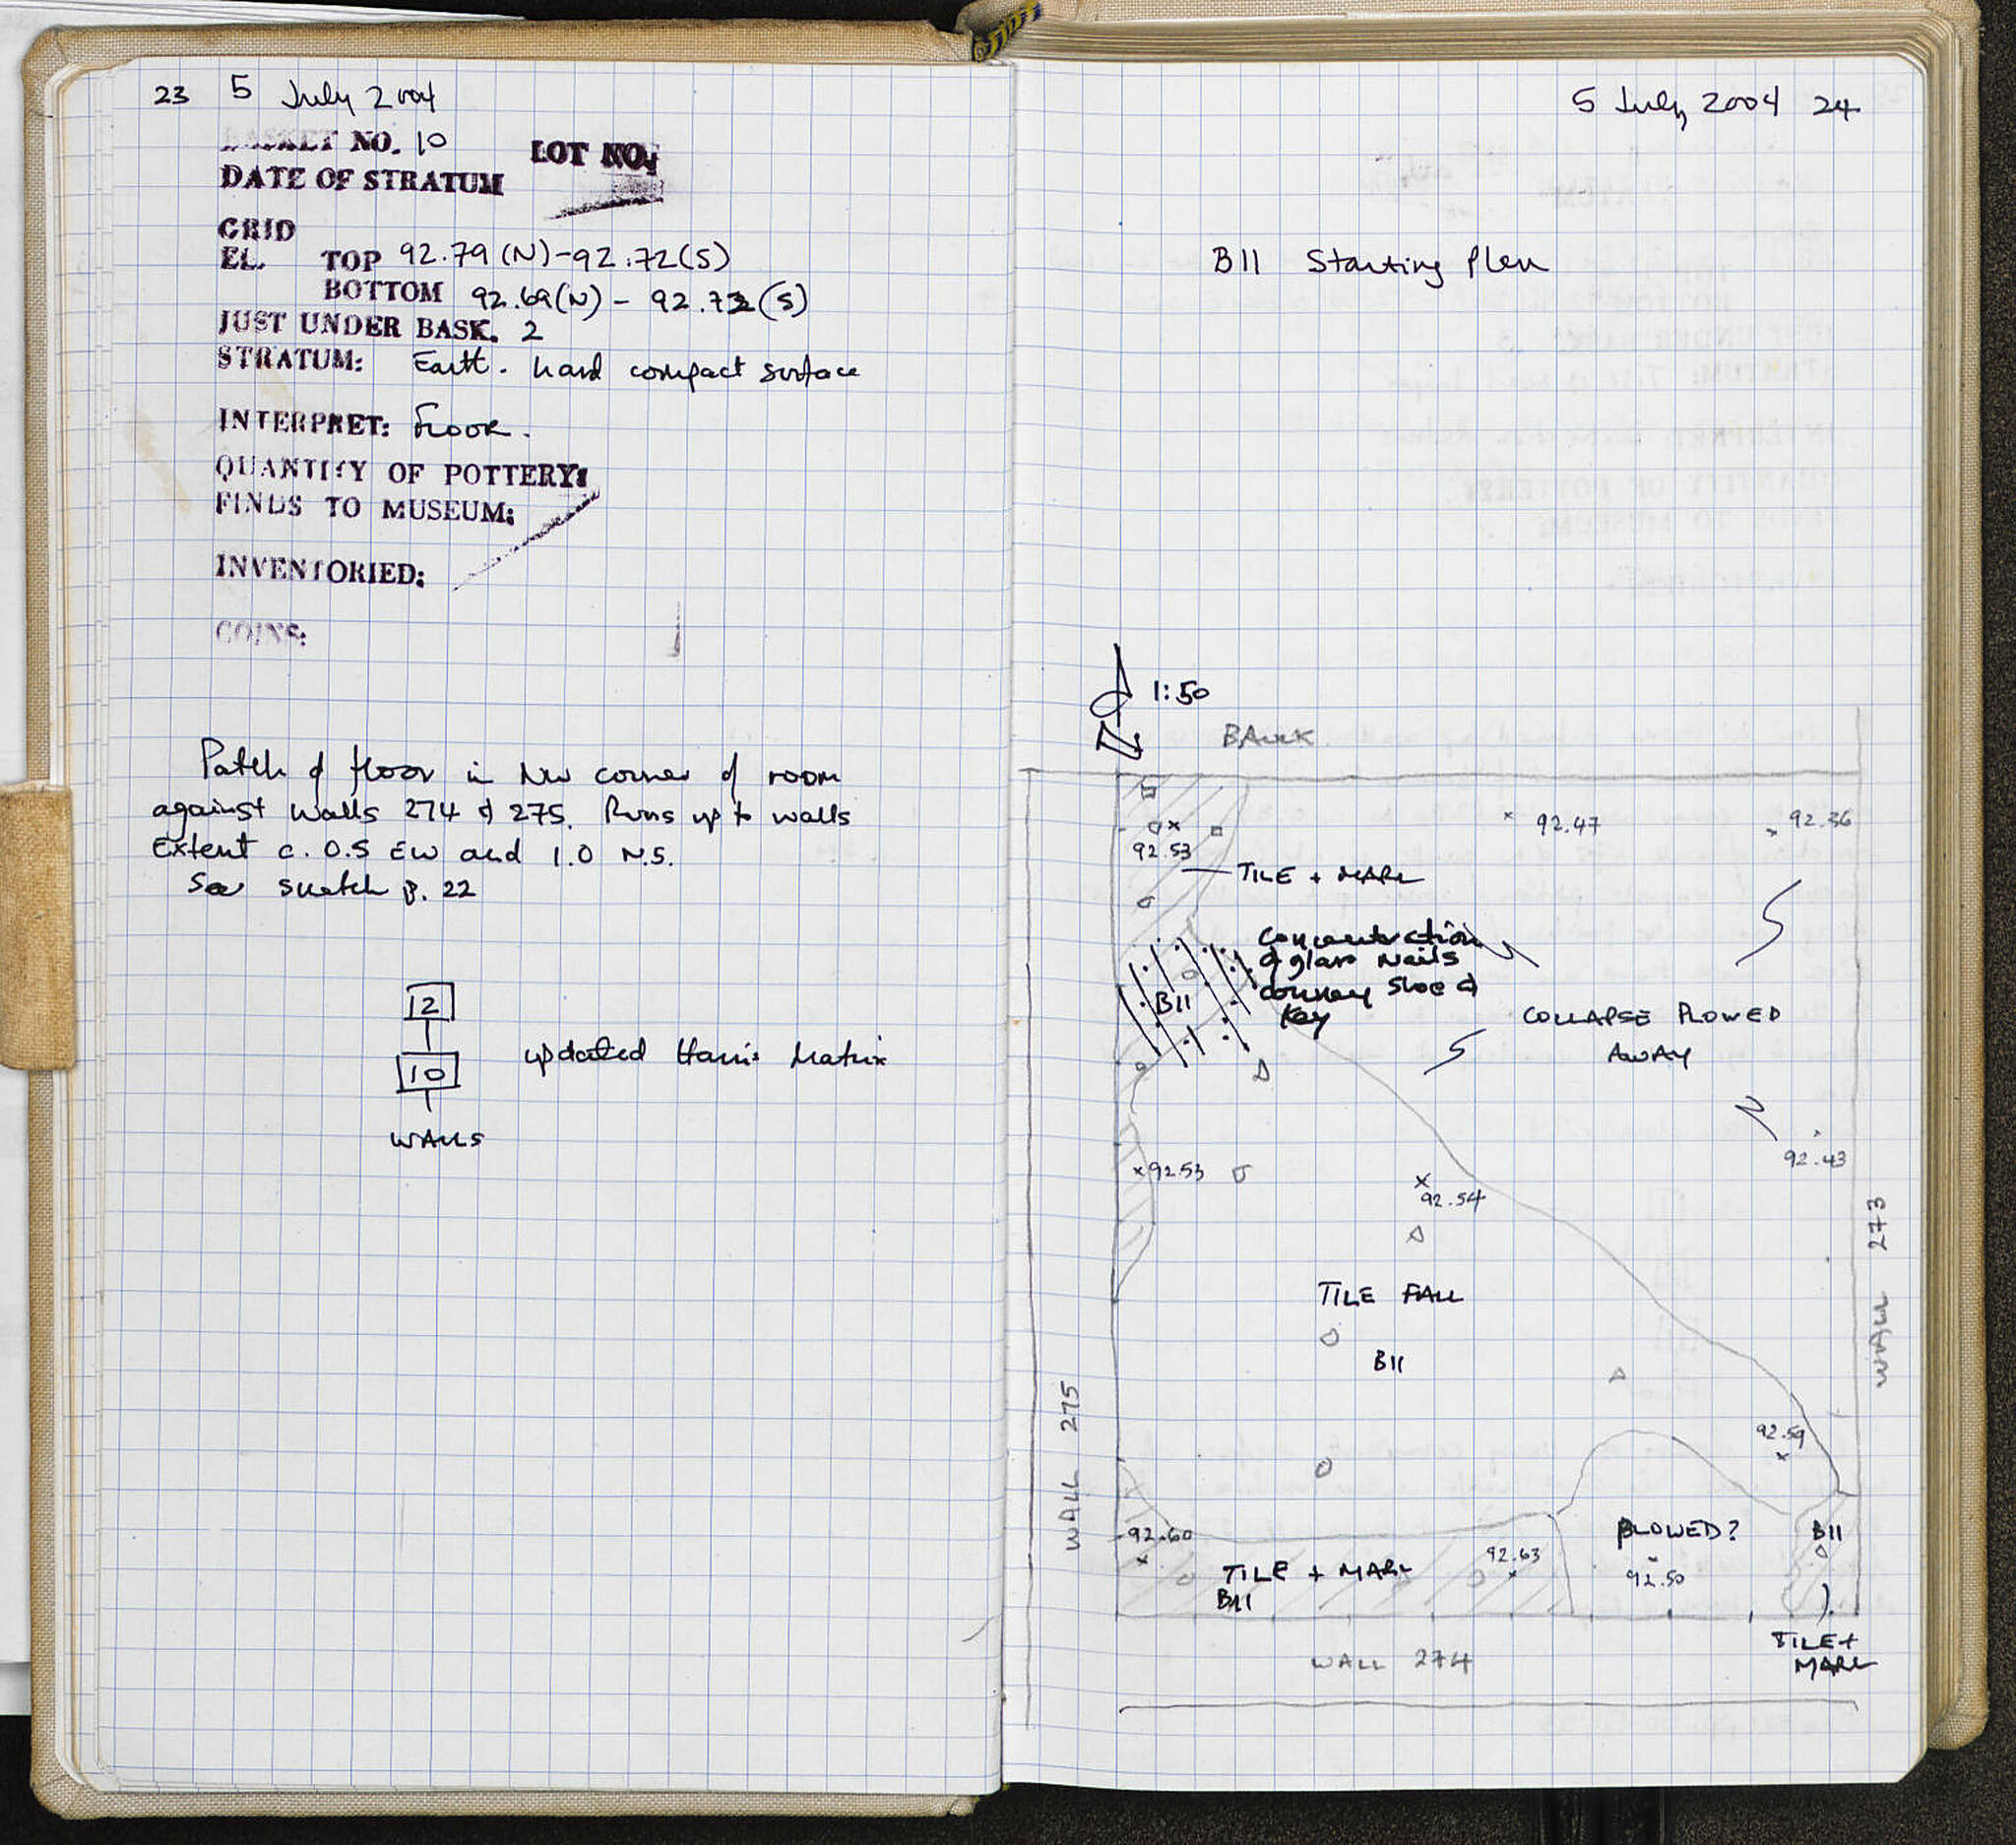 23 5 July 2004
BASKET NO. 10
LOT NO.
DATE OF STRATUM
GRID
EL. TOP 92.79 (N)-92.72(S)
BOTTOM 92.69(N) - 92.72(S)
JUST UNDER BASK. 2
STRATUM: Earth. hard compact surface
INTERPRET: FLOOR.
QUANTITY OF POTTERY:
FINDS TO MUSEUM:
INVENTORIED:
COINS:
Patch of floor in NW corner of room
against Walls 274 & 275. Runs up to walls
Extent c. 0.5 EW and 1.0 N.S.
See sketch p. 22
12
10
WALLS
updated Harris Matrix
5 July 2004 24
B11 Starting Plan
1:50
BAULK
92.53
92.47
92.36
TILE + MARL
Concentration
of glass nails
donkey shoe &
key
B11
COLLAPSE PLOWED
AWAY
92.43
92.53
92.54
WALL 273
TILE FALL
B11
92.59
WALL 275
92.60
TILE + MARL
B11
92.63
PLOWED?
92.50
B11
TILE +
MARL
WALL 274